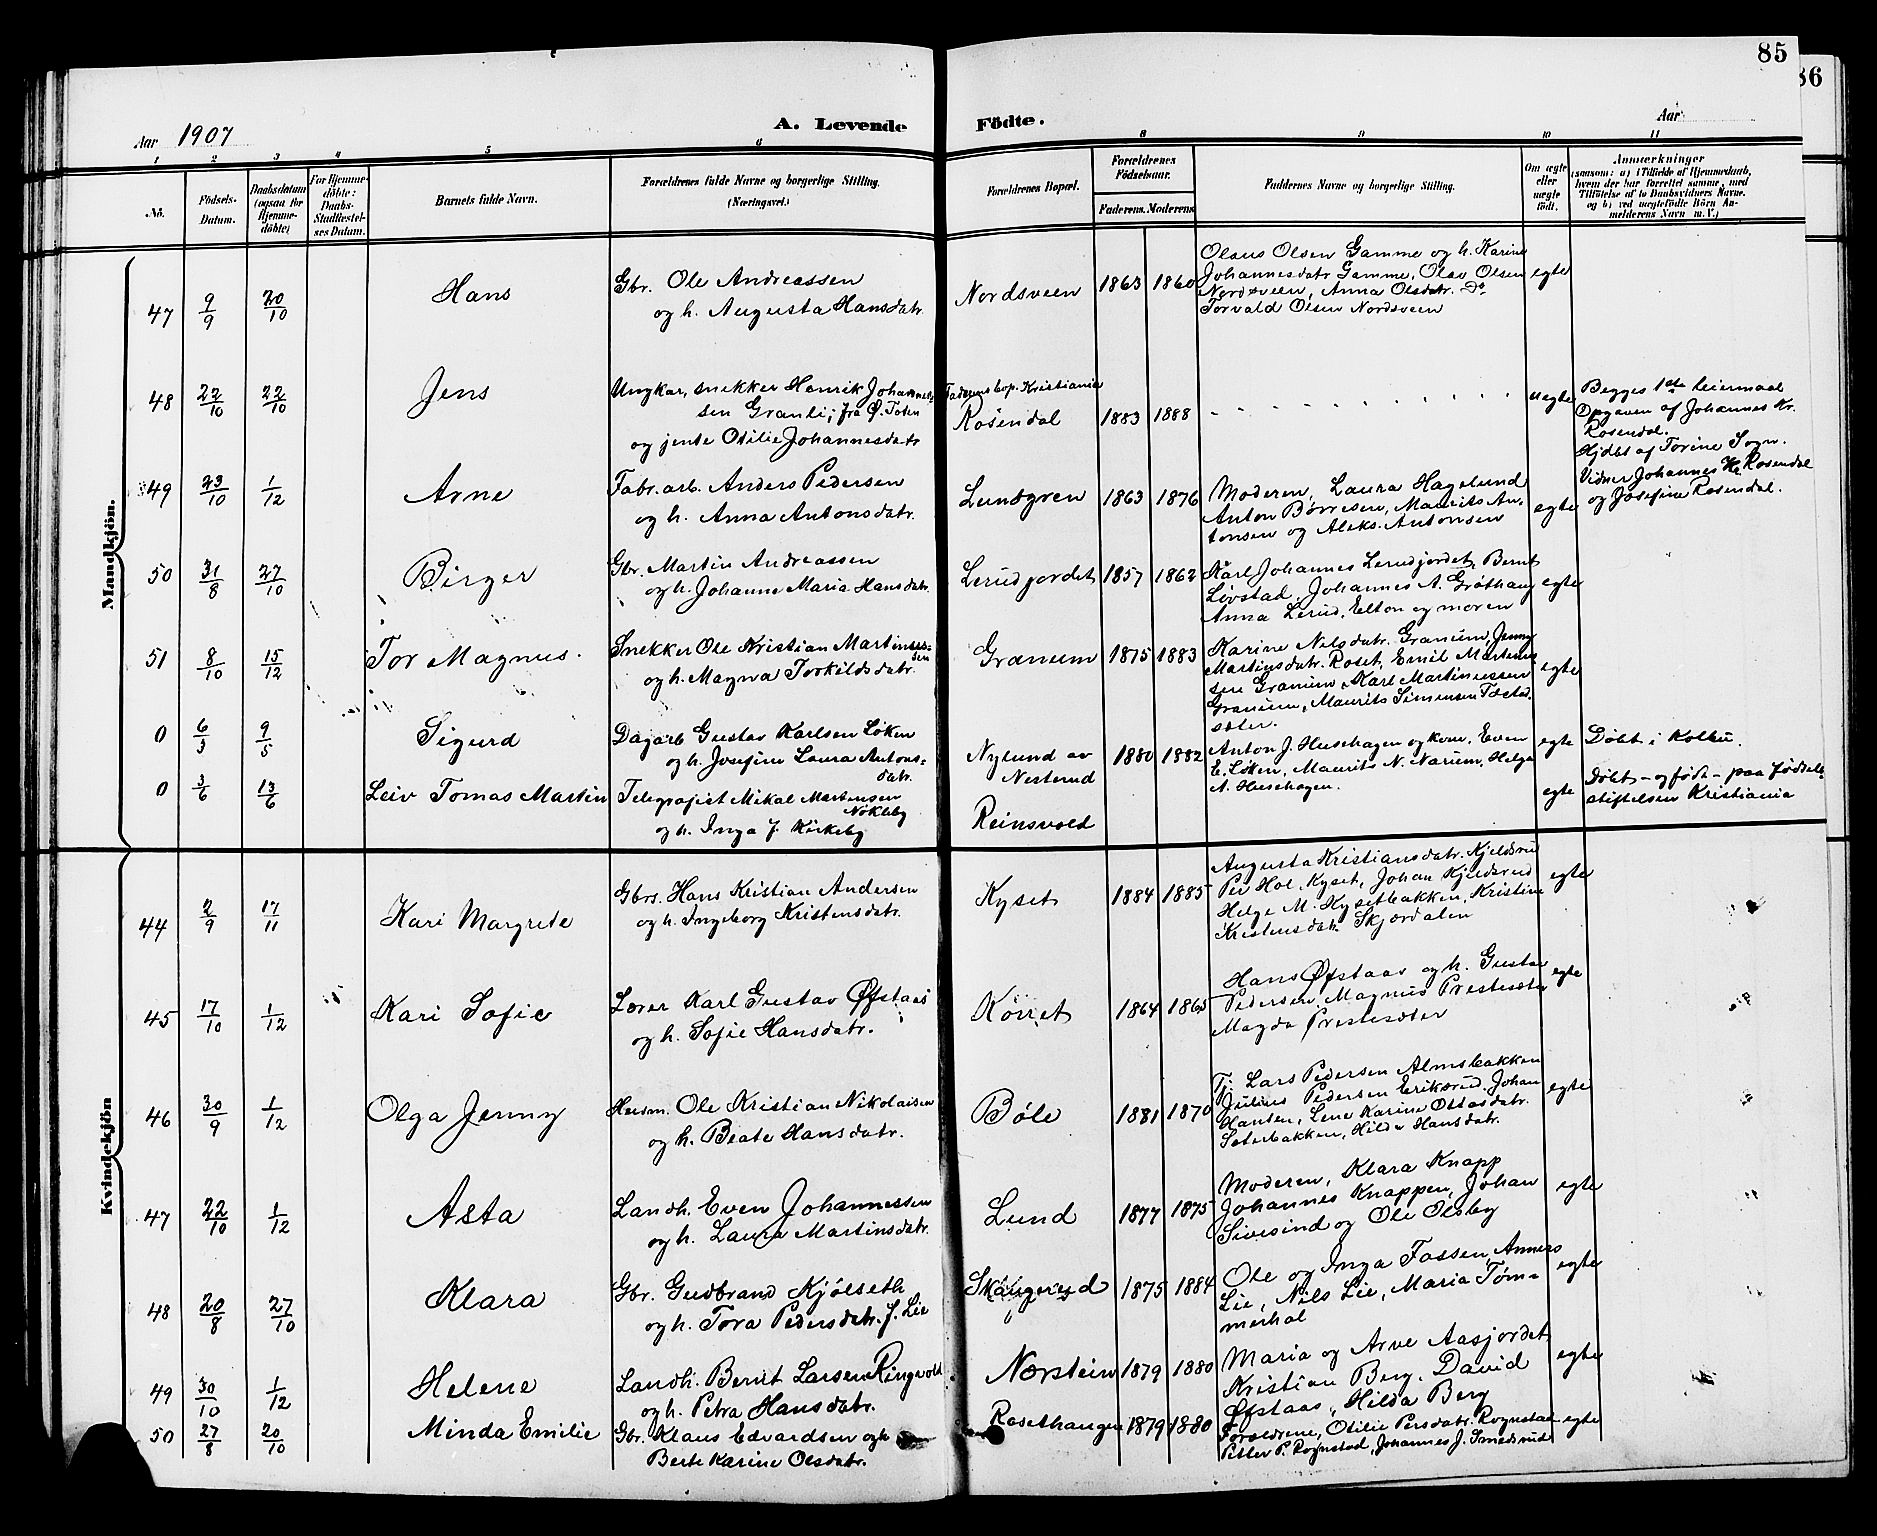 85
86
Aar 1907
A. Levende Födte.
Aar
1 2 3 4 5 6 8 9 10 11
Nö.
Födsels-Datum.
Daabsdatum (ogsaa for Hjemmedöbte)
For Hjemmedöbte: Daabs-Stadfæstelses Datum.
Barnets fulde Navn.
Forældrenes fulde Navne og borgerlige Stilling. (Næringsvei.)
Forældrenes Bopæl.
Forældrenes Födselsaar.
Faderens. Moderens
Faddernes Navne og borgerlige Stilling.
Om ægte eller uægte födt.
Anmærkninger
(saasom: a) i Tilfælde af Hjemmedaab,
hvem der har forrettet samme, med
Tilföielse af to Daabsvidners Navne.
og b) ved uægtefödte Börn An-
melderens Navn m. V.)
Mandkjön.
47 9/9 20/10 Hans
Gbr. Ole Andreassen
og h. Augusta Hansdatr.
Nordsveen 1863 1860
Olaus Olsen Gamme og h. Karine
Johannesdatr Gamme, Olav Olsen
Nordsveen, Anna Olsdatr. Do
Torvald Olsen Nordsveen
egte
48 22/10 22/10 Jens
Ungkar, snekker Henrik Johannes-
sen Granli, fra Ø. Toten
og jente Otilie Johannesdatr
Faderens bop. Kristiania
Rosendal 1883 1888
uegte
Begges 1ste leiermaal
Opgaven af Johannes Kr.
Rosendal.
Hjdbt af Torine Sogn.
Vidner Johannes Kr Rosendal
og Josefine Rosendal.
49 23/10 1/12 Arne
Fabr. arb. Anders Pedersen
og h. Anna Antonsdatr.
Lundgren 1863 1876
Moderen, Laura Hagelund
Anton Børresen, Maurits An-
tonsen og Aleks. Antonsen
egte
50 31/8 27/10 Birger
Gbr. Martin Andreassen
og h. Johanne Maria Hansdatr.
Lerudjordet 1857 1862
Karl Johannes Lerudjordet, Bernt
Livstad, Johannes A. Grøthaug
Anna Lerud, Elton og moren
egte
51 8/10 15/12 Tor Magnus.
Snekker Ole Kristian Martinus-
sen
og h. Magna Torkildsdatr.
Granum 1875 1883
Karine Nilsdatr. Granum, Jenny
Martinsdatr. Roset, Emil Martinus
sen Granum, Karl Martinussen
Granum, Maurits Simensen
sæter.
egte
0 6/3 9/5 Sigurd
Dagarb Gustav Karlsen Løken
og h. Josefine Laura Antons-
datr.
Nylund av
Nesterud
1880 1882
Anton J. Huschagen og kone, Even
E. Løken, Maurits N. Narum, Helga
A. Huschagen.
egte
Døbt i Kolbu.
0 3/6 13/6 Leiv Tomas Martin
Telegrafist Mikal Martinsen
Nøkleby
og h. Inga J. Kirkeby
Reinsvold
egte
Døbt - og født - paa Fødsels
stiftelsen Kristiania
Kvindekjön
44 2/9 17/11 Kari Margrete
Gbrs. Hans Kristian Andersen
og h. Ingeborg Kristensdatr.
Kyset 1884 1885
Augusta Kristiansdatr. Kjeldsrud
Per Hol, Kyset, Johan Kjeldsrud
Helge M. Kysetbakken, Kristine
Kristensdatr. Skjærdalen
egte
45 17/10 1/12 Kari Sofie
Lærer Karl Gustav Øfstaas
og h. Sofie Hansdatr.
Korset 1864 1865
Hans Øfstaas og h. Gustav
Pedersen, Magnus Prestesæter
Magda Prestesæter
egte
46 30/9 1/12 Olga Jenny
Husm. Ole Kristian Nikolaisen
og h. Beate Hansdatr.
Bøle 1881 1870
Tj. Lars Pedersen Almsbakken
Julius Pedersen Eriksrud, Johan
Hansen, Lene Karine Ottosdatr.
Seterbakken, Hilda Hansdatr.
egte
47 22/10 1/12 Asta
Landh. Even Johannessen
og h. Laura Martinsdatr.
Lund 1877 1875
Moderen, Klara Knapp
Johannes Knappen, Johan
Sivesind og Ole Olsby
egte
48 20/8 27/10 Klara
Gbr. Gudbrand Kjølseth
og h. Tora Pedersdatr. f. Lie
Skaugerud 1875 1884
Ole og Inga Fossen, Anners
Lie, Nils Lie, Maria Tøm-
merhol
egte
49 30/10 1/12 Helene
Landh. Bernt Larsen Ringvold
og h. Petra Hansdatr.
Norstein 1879 1880
Maria og Arve Aasjordet
Kristian Berg, David
Øfstaas, Hilda Berg
egte
50 27/8 20/10 Minda Emilie
Gbr. Klaus Edvardsen og h
Berte Karine Olsdatr.
Rosethaugen 1879 1880
Foreldrene, Otilie Persdatr. Rognstad
Petter P. Rognstad, Johannes J. Smedsrud
egte